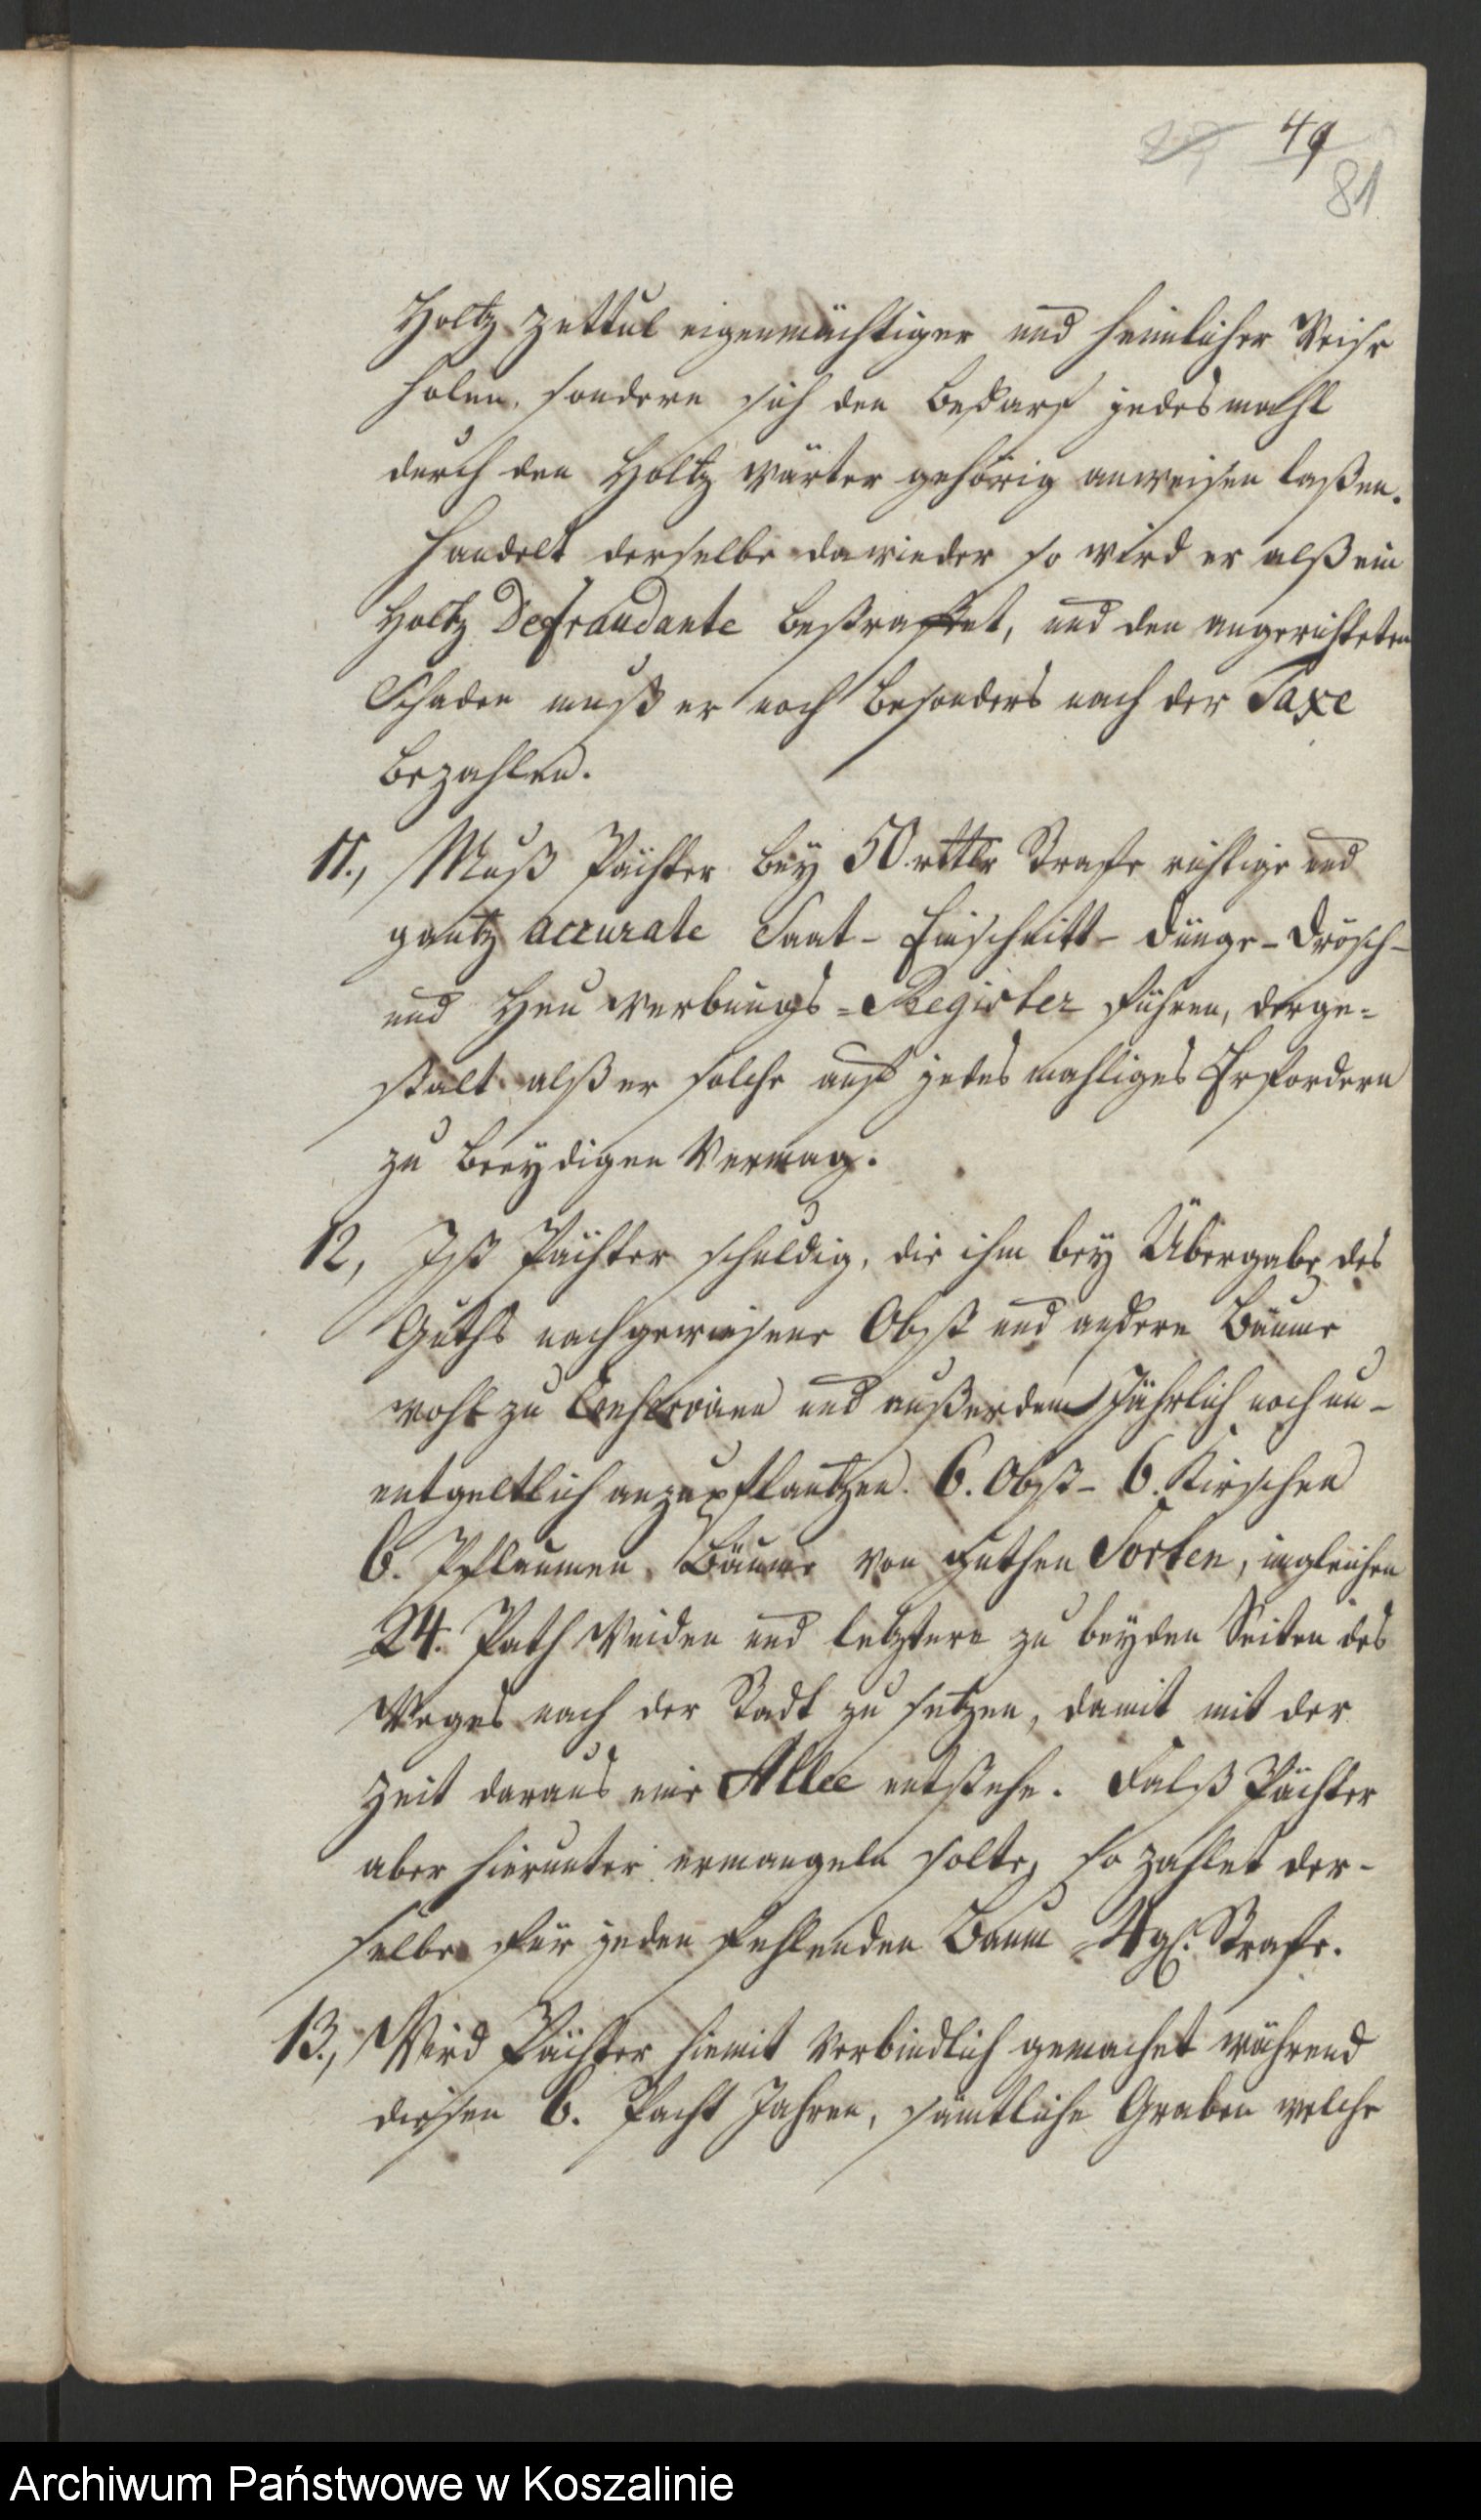 49
81
Holtz Zettul eigenmächtiger und heimlicher Weise
holen, sondern sich den Bedarf jedesmahl
durch den Holtz Wärter gehörig anweisen laßen.
Handelt derselbe dawieder so wird er alß ein
Holtz Defraudante bestrafet, und den angerichteten
Schaden muß er noch besonders nach der Taxe
bezahlen.
11., Muß Pächter bey 50. rthlr Strafe richtige und
gantz accurate Saat- Einschnitt- Dünge- Drösch-
und Heu Werbungs-Register führen, derge-
stalt alß er solche auf jedesmahliges Erfordern
zu beeydigen Vermag.
12, Ist Pächter schuldig, die ihm bey Übergabe des
Guths nachgewiesene Obst und andere Bäume
wohl zu Conserviren und außerdem Jährlich noch un-
entgeltlich anzupflantzen 6. Obst- 6. Kirschen
6. Pflaumen Bäume von guthen Sorten, ingleichen
24. Path Weiden und letztere zu beyden Seiten des
Weges nach der Stadt zu setzen, damit mit der
Zeit daraus eine Allee entstehe. Falß Pächter
aber hierunter ermangeln solte, so zahlet der-
selbe für jeden fehlenden Baum 4 gl. Strafe.
13., Wird Pächter hiemit Verbindlich gemachet während
diesen 6. Pacht Jahren, sämtliche Graben welche
Archiwum Państwowe w Koszalinie